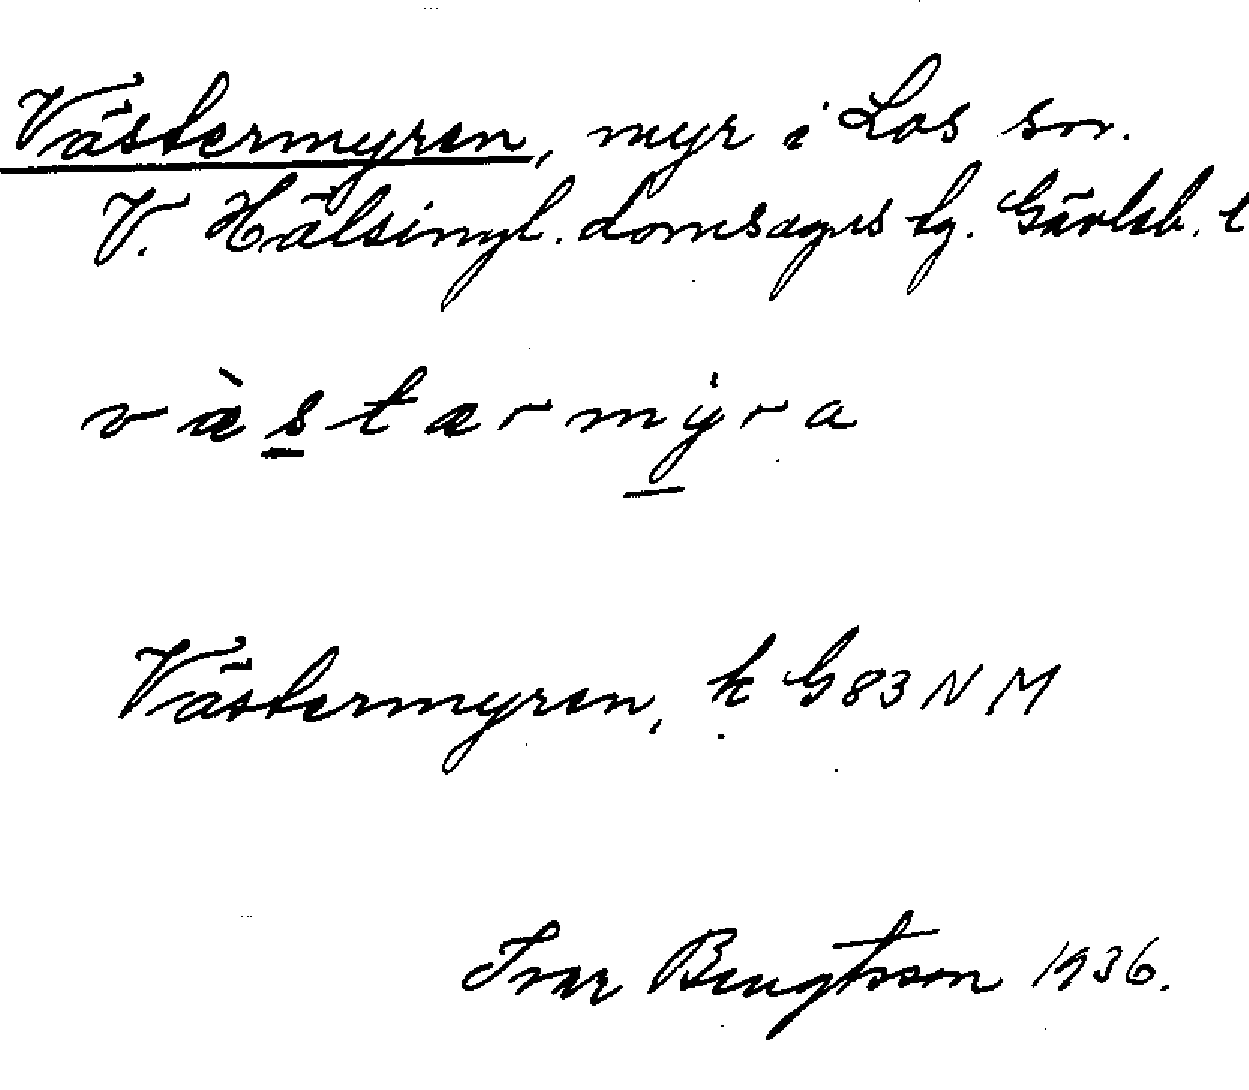 Västermyren, myr i Los sn.
V. Hälsingl. domsagas tg. Gävleb. l
væ̀stærmýra
Västermyren, k G83NM
Ivar Bengtsson 1936.